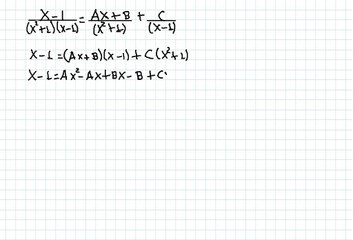 X-1/((X²+1)(X-1)) = (AX+B)/(X²+1) + C/(X-1)
X-1=(AX+B)(X-1)+C(X²+1)
X-1=AX²-AX+BX-B+C